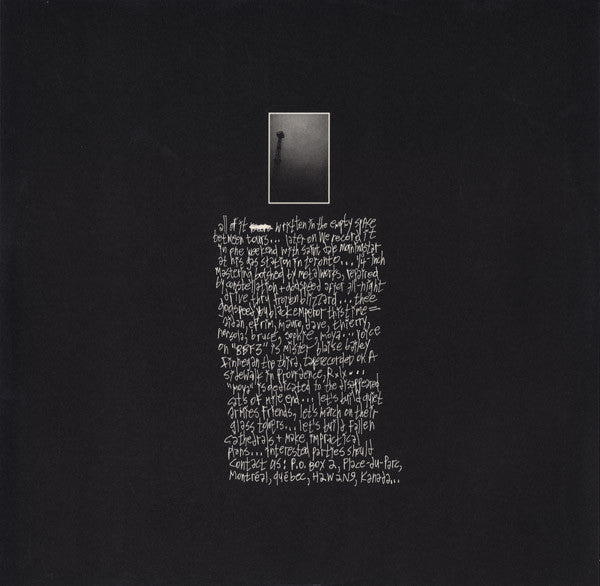 all of it written in the empty space
between tours... later on we record it
in one weekend with saint dale morningstar
at his gas station in toronto... 1/4-inch
mastering botched by metalworks, repaired
by constellation + godspeed after all-night
drive thru frozen blizzard... thee
godspeed you black emperor this time =
aidan, efrim, mauro, dave, thierry,
norsola, bruce, sophie, moya... voice
on "BBF3" is mister blaise bailey
finnegan the third, tape recorded on A
sidewalk in Providence, R.I....
"moya" is dedicated to the disappeared
cats of mile end... let's build quiet
armies friends, let's march on their
glass towers... let's build fallen
cathedrals + make impractical
plans... interested parties should
contact us: P.O. box 2, Place-du-Parc,
Montréal, québec, H2W2N9, Kanada...